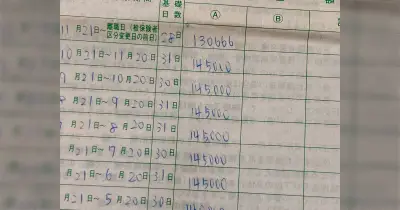 基礎
日数 Ⓐ Ⓑ
11月21日~ 離職日(被保険者区分変更日の前日) 28日 130666
10月21日~11月20日 31日 145000
9月21日~10月20日 30日 145000
月21日~9月20日 31日 145000
月21日~8月20日 31日 145000
月21日~7月20日 30日 145000
月21日~6月20日 31日 145000
月21日~5月20日 30日